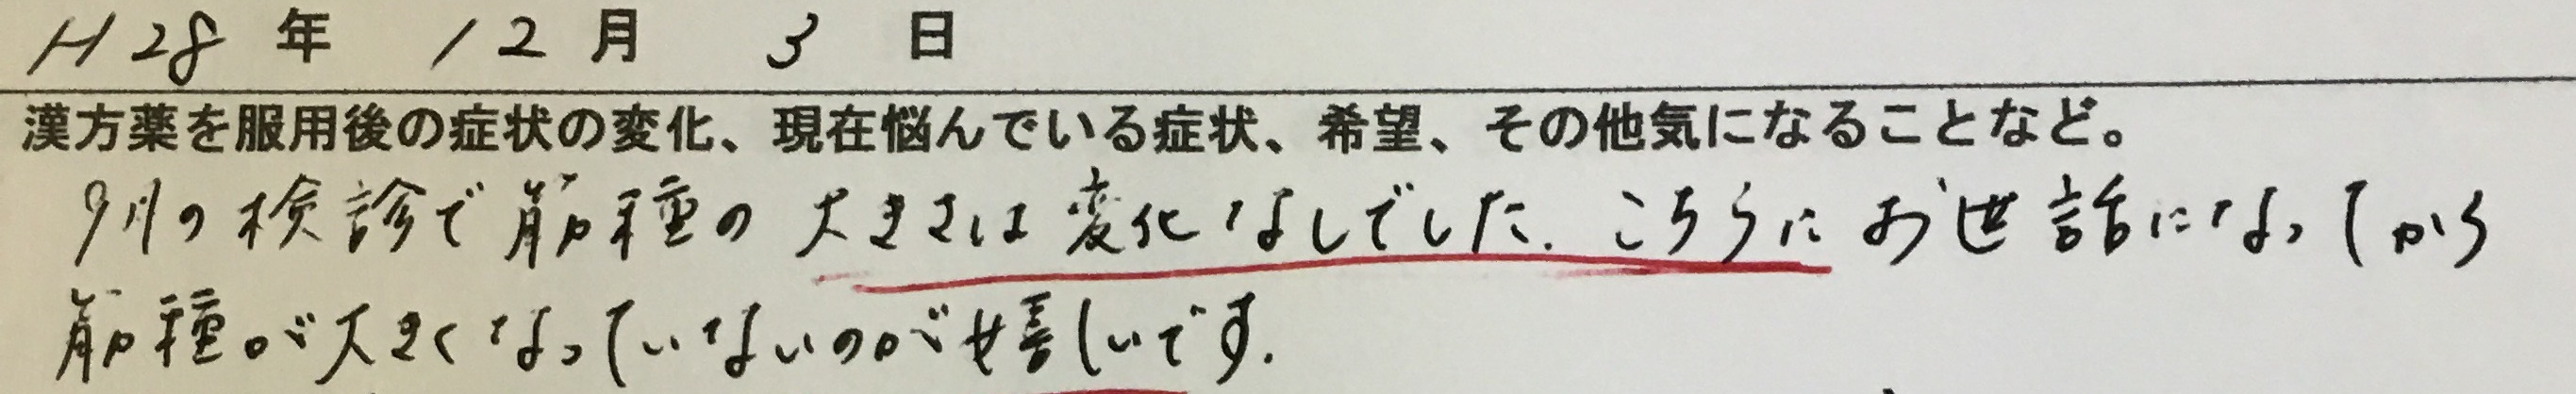 H28年 12月 3日
漢方薬を服用後の症状の変化、現在悩んでいる症状、希望、その他気になることなど。
9月の検診で筋種の大きさは変化なしでした. こちらにお世話になってから
筋種が大きくなっていないのが嬉しいです.